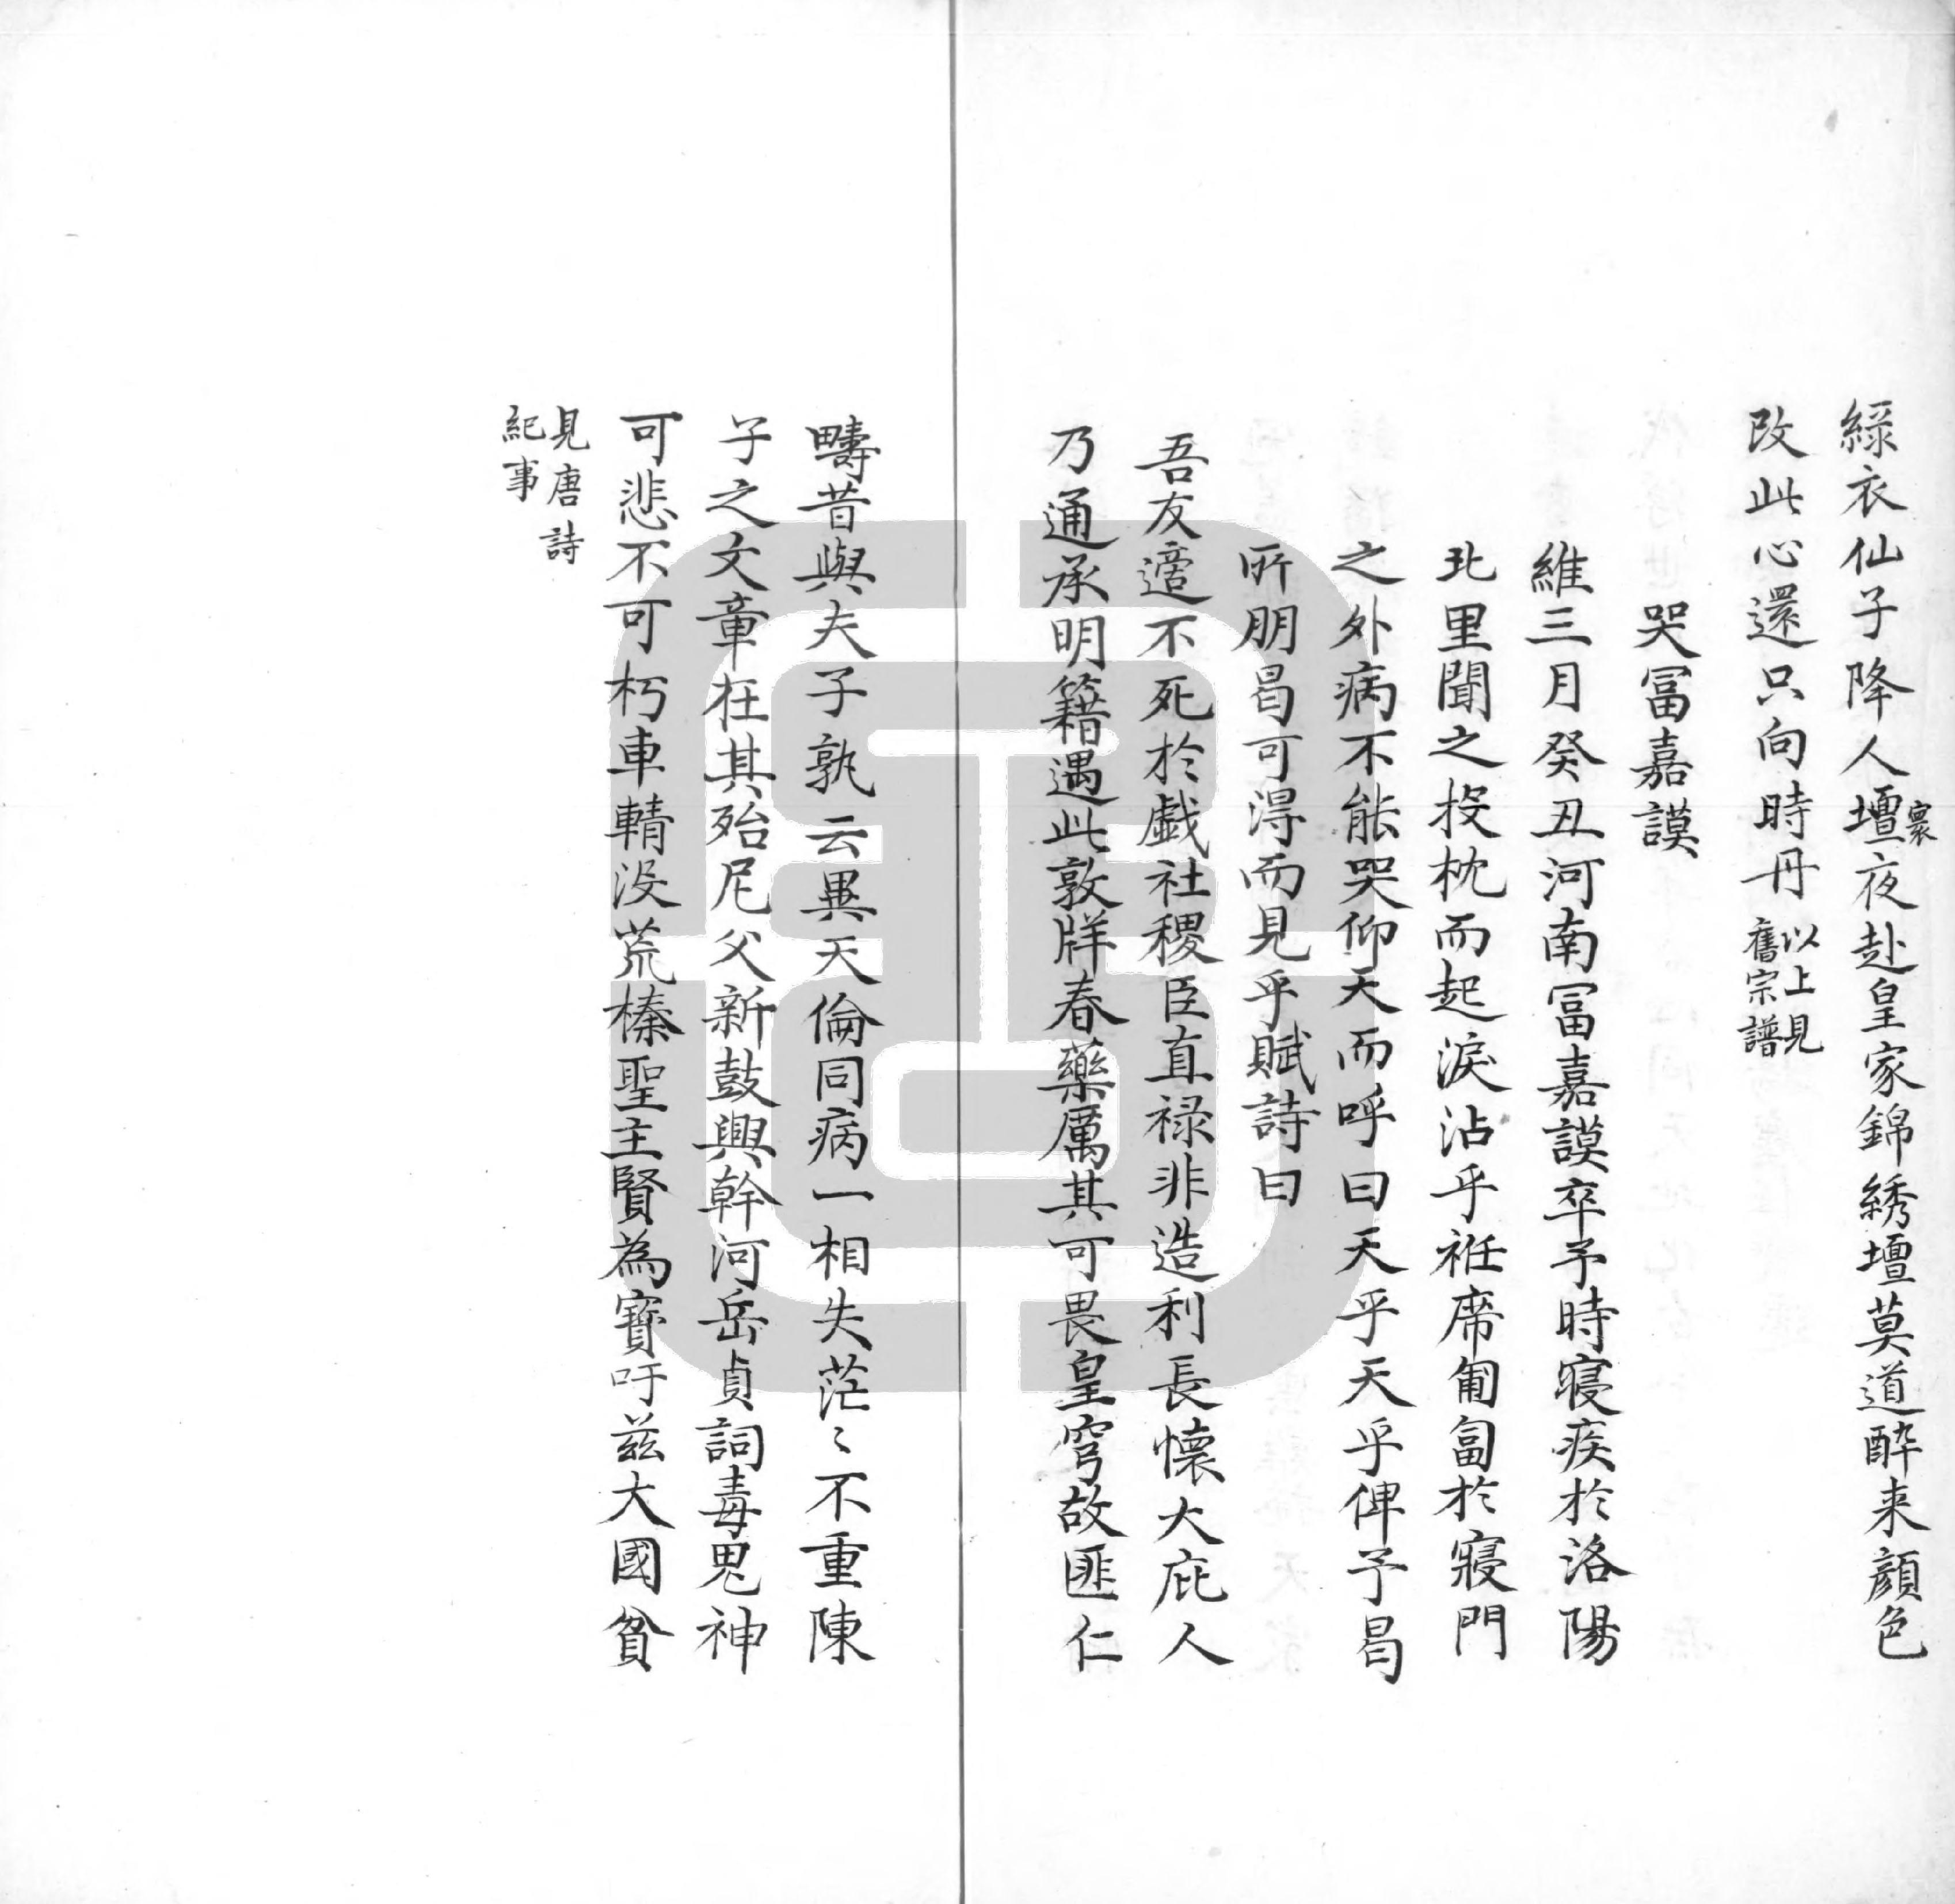 綠衣仙子降人壇夜赴皇家錦綉壇莫道酔来顔色
寰
改此心還只向時丹
以上見
舊宗譜
哭冨嘉謨
維三月癸丑河南冨嘉謨卒予時寝疾於洛陽
北里聞之投枕而起淚沾乎袵席匍匐於寢門
之外病不能哭仰天而呼曰天乎天乎俾予曷
所朋曷可淂而見乎賦詩曰
吾友適不死於戯社稷臣直禄非造利長懐大庇人
乃通承明籍遇此敦牂春藥厲其可畏皇穹故匪仁
疇昔與夫子孰云異天倫同病一相失茫〻不重陳
子之文章在其殆尼父新鼓興幹河岳貞詞毒鬼神
可悲不可朽車輤没荒榛聖主賢為寳吁兹大國貧
見唐詩
紀事